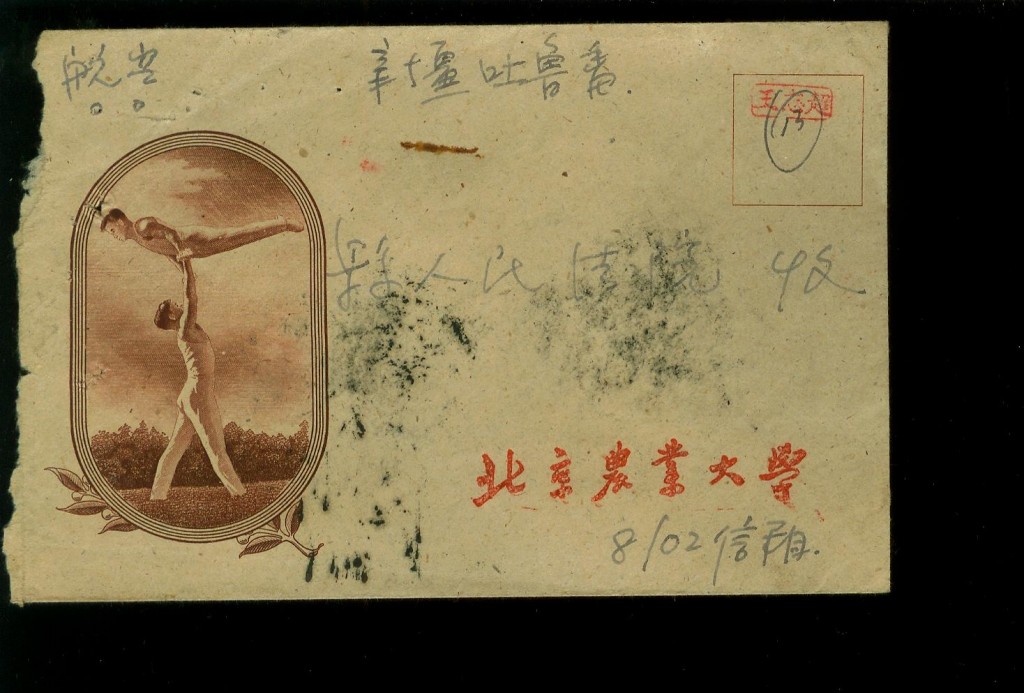 航空
新疆吐鲁番
13
县人民法院 收
北京農業大學
8102信箱